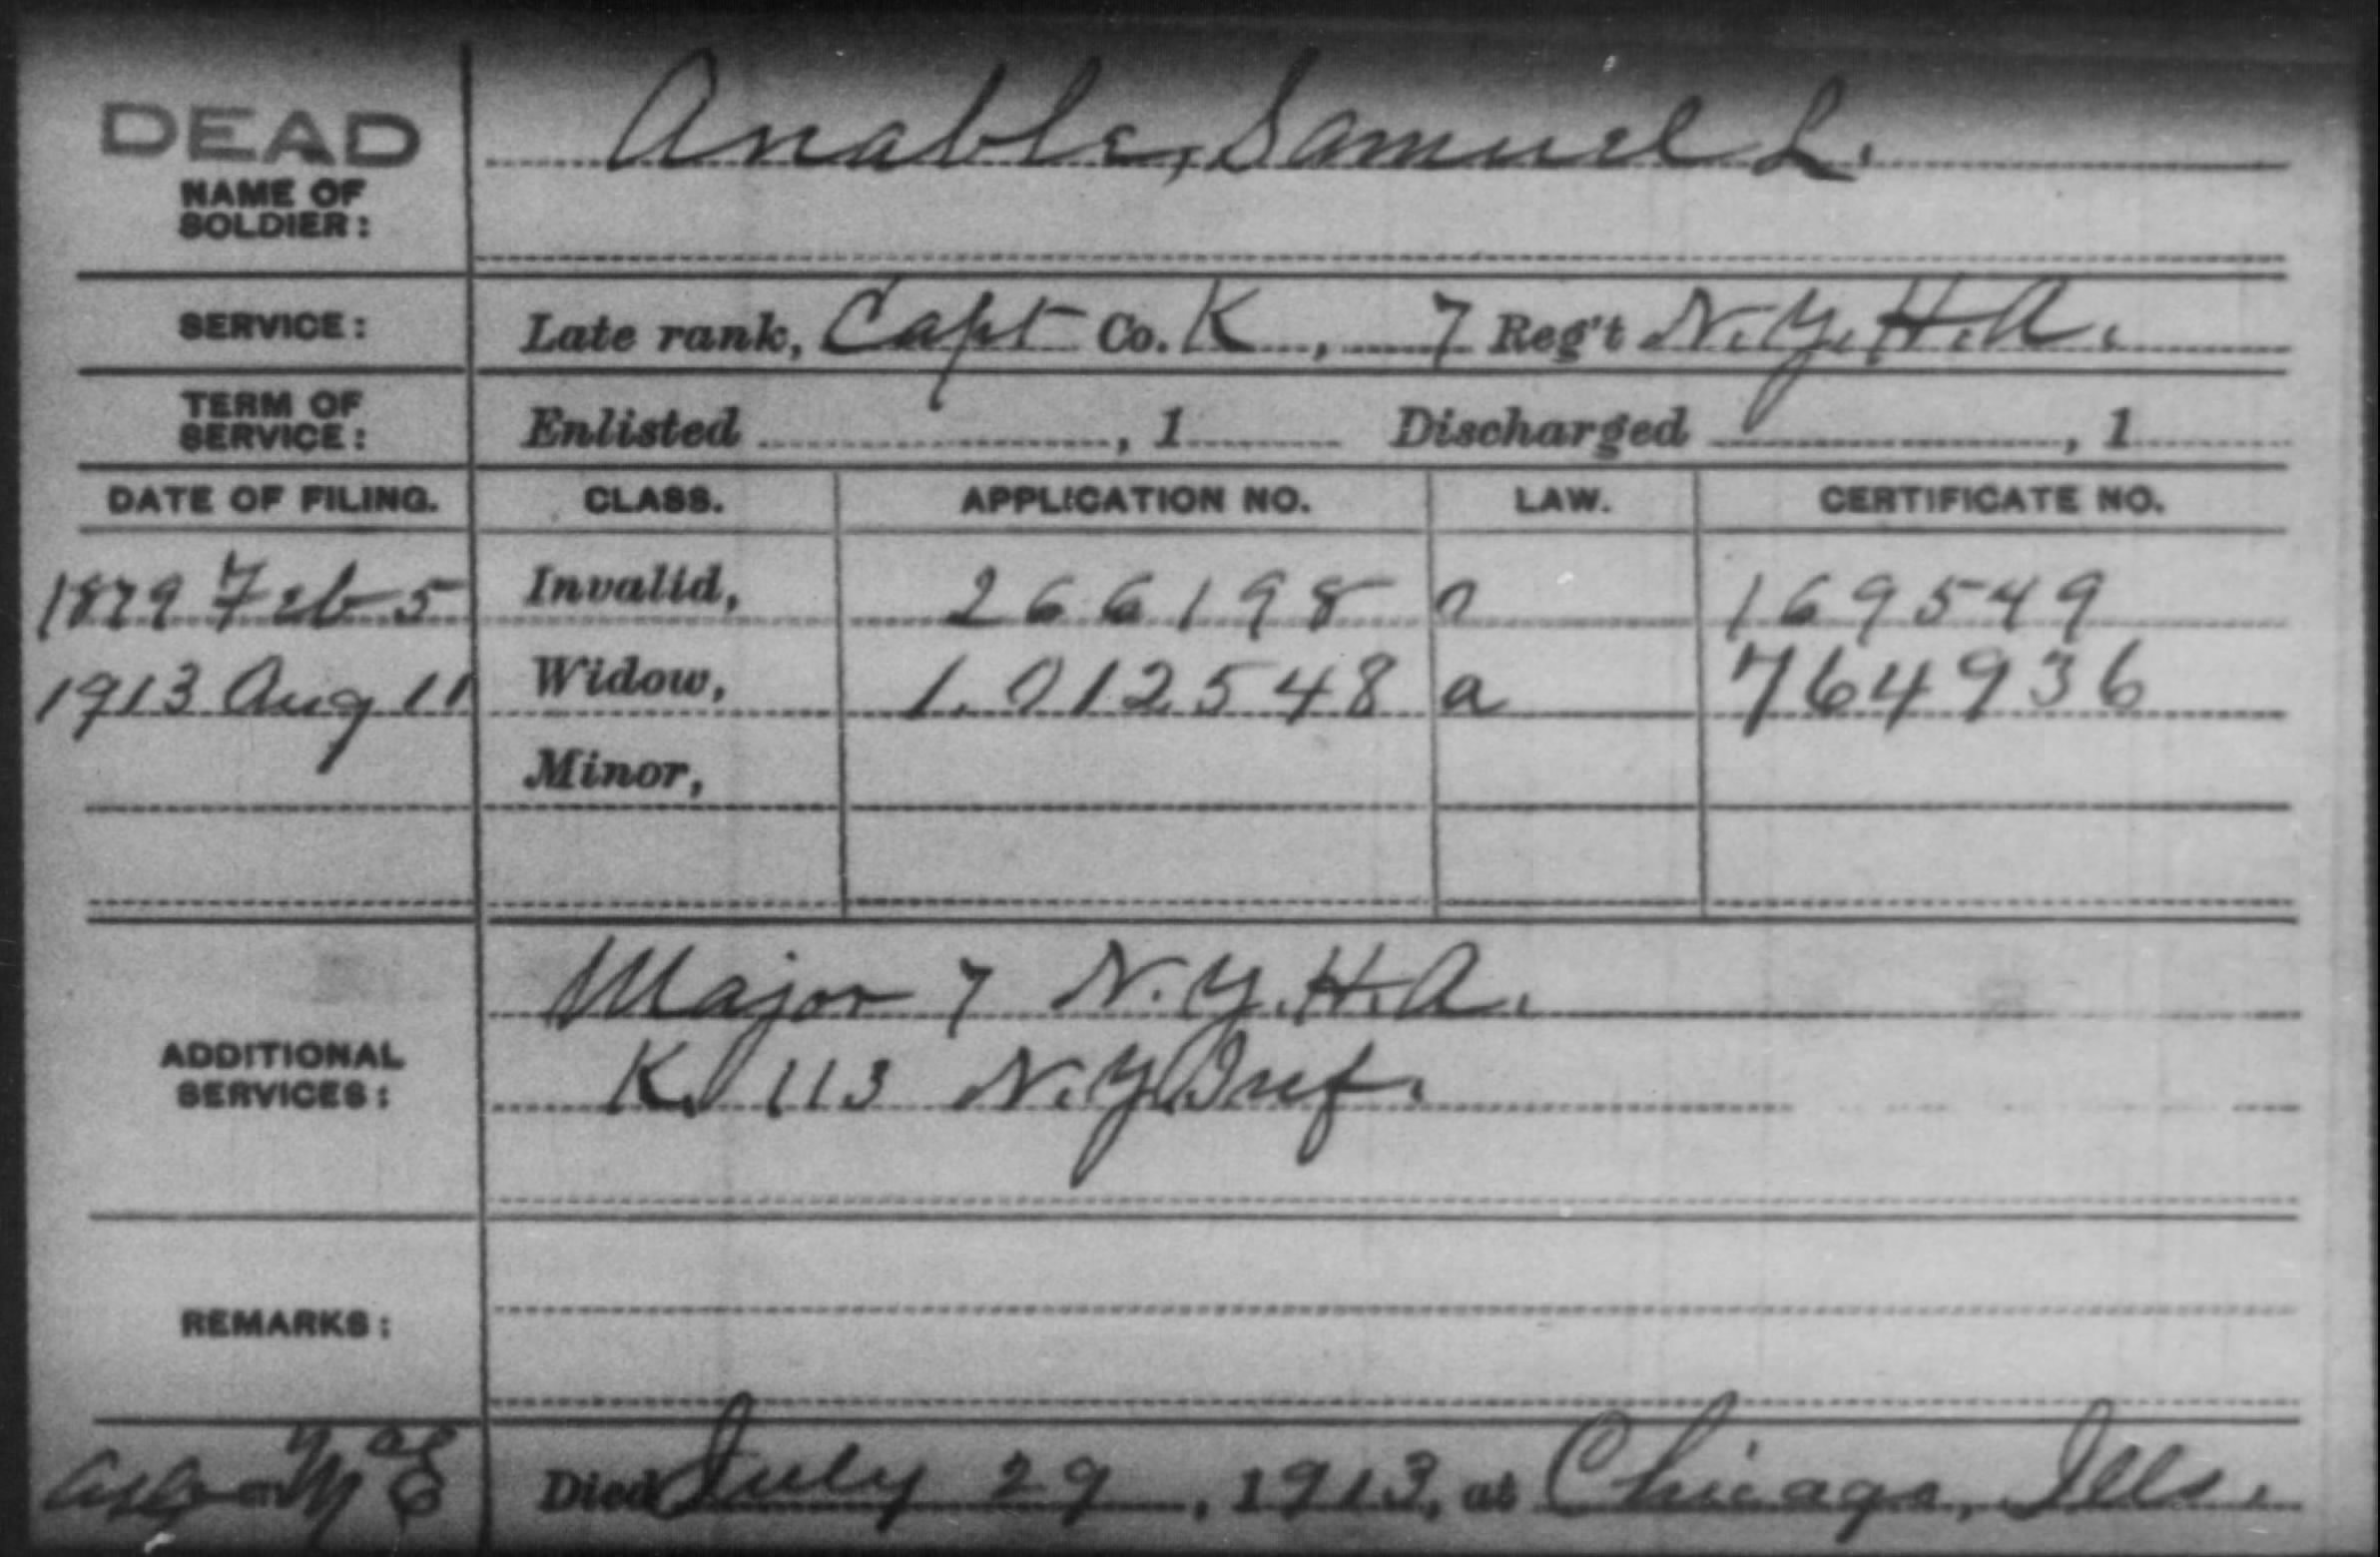 DEAD
NAME OF SOLDIER: Anable, Samuel L.
SERVICE: Late rank, Capt Co. K, 7 Reg't N.Y.H.A.
TERM OF SERVICE: Enlisted , 1 Discharged , 1
DATE OF FILING. CLASS. APPLICATION NO. LAW. CERTIFICATE NO.
1879 Feb 5 Invalid, 266198 169549
1913 Aug 11 Widow, 1.012548 a 764936
Minor,
ADDITIONAL SERVICES: Major 7 N.Y.H.A.
K. 113 N.Y. Inf.
REMARKS:
Died July 29, 1913, at Chicago, Ills.